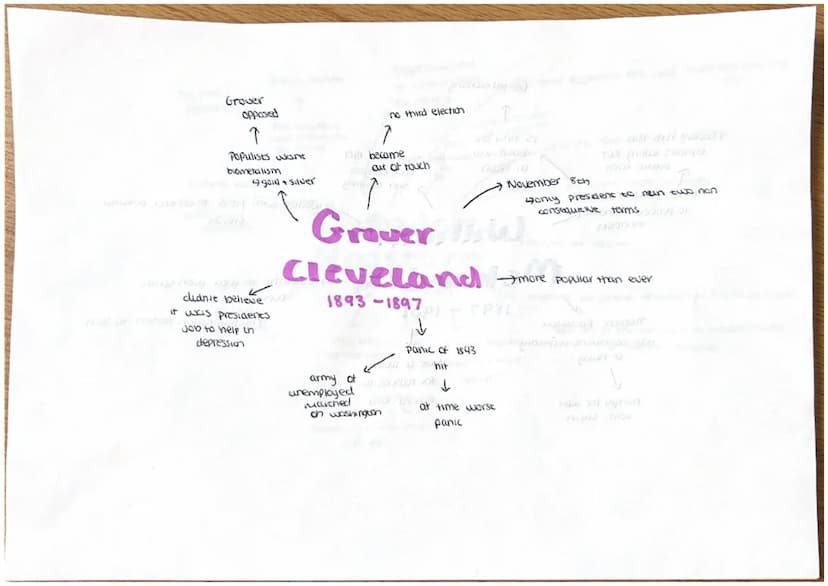 Grover
opposed
Populists want
bimetalism
↳ gold + silver
no third election
became
out of touch
November 8th
↳ only president to
two non
consequitive terms
Grover
Cleveland
1893 - 1897
more popular than ever
didnt believe
it was presidents
job to help in
depression
panic of 1843
hit
army of
unemployed
marched
on washington
at time worse
panic